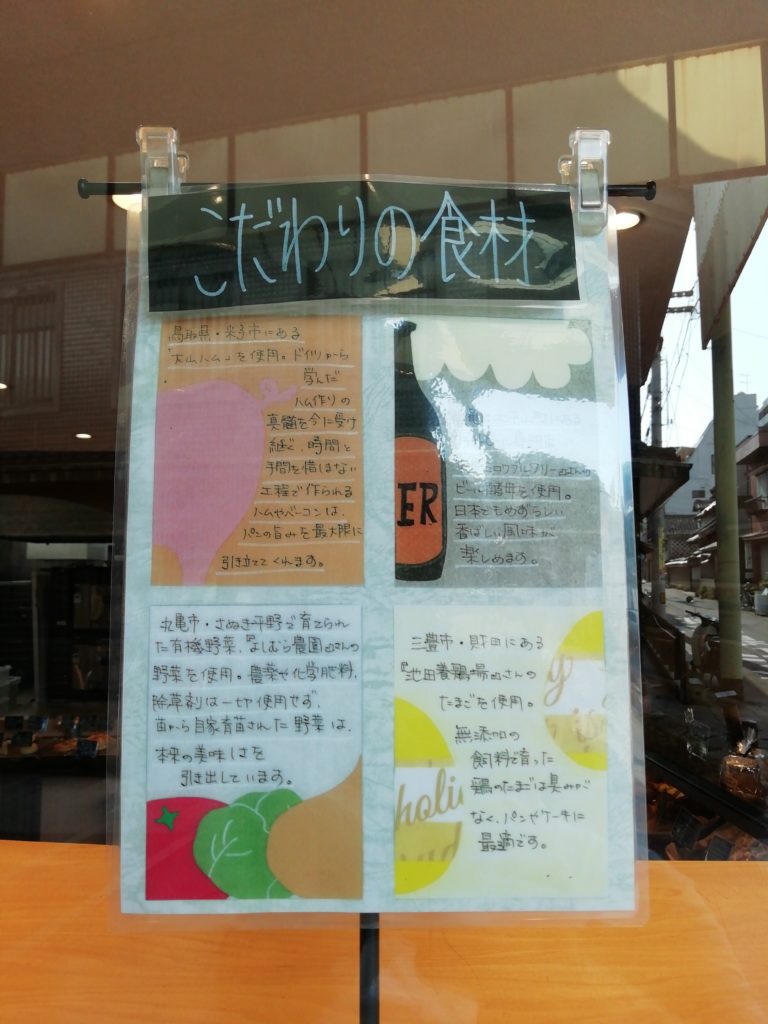 こだわりの食材
鳥取県・米子市にある
「大山ハム」を使用。ドイツから
学んだ
ハム作りの
真髄を今に受け
継ぐ、時間と
手間を惜しまない
工程で作られる
ハムやベーコンは、
パンの旨みを最大限に
引き立ててくれます。
ER
ビール酵母を使用。
日本でもめずらしい
香ばしい風味が
楽しめます。
丸亀市・さぬき平野で育てられ
た有機野菜。『よしむら農園』さんの
野菜を使用。農薬や化学肥料、
除草剤は一切使用せず、
苗から自家育苗された野菜は、
本来の美味しさを
引き出しています。
三豊市・財田にある
『池田養鶏場』さんの
たまごを使用。
無添加の
飼料で育った
鶏のたまごは臭みが
なく、パンやケーキに
最適です。
holi